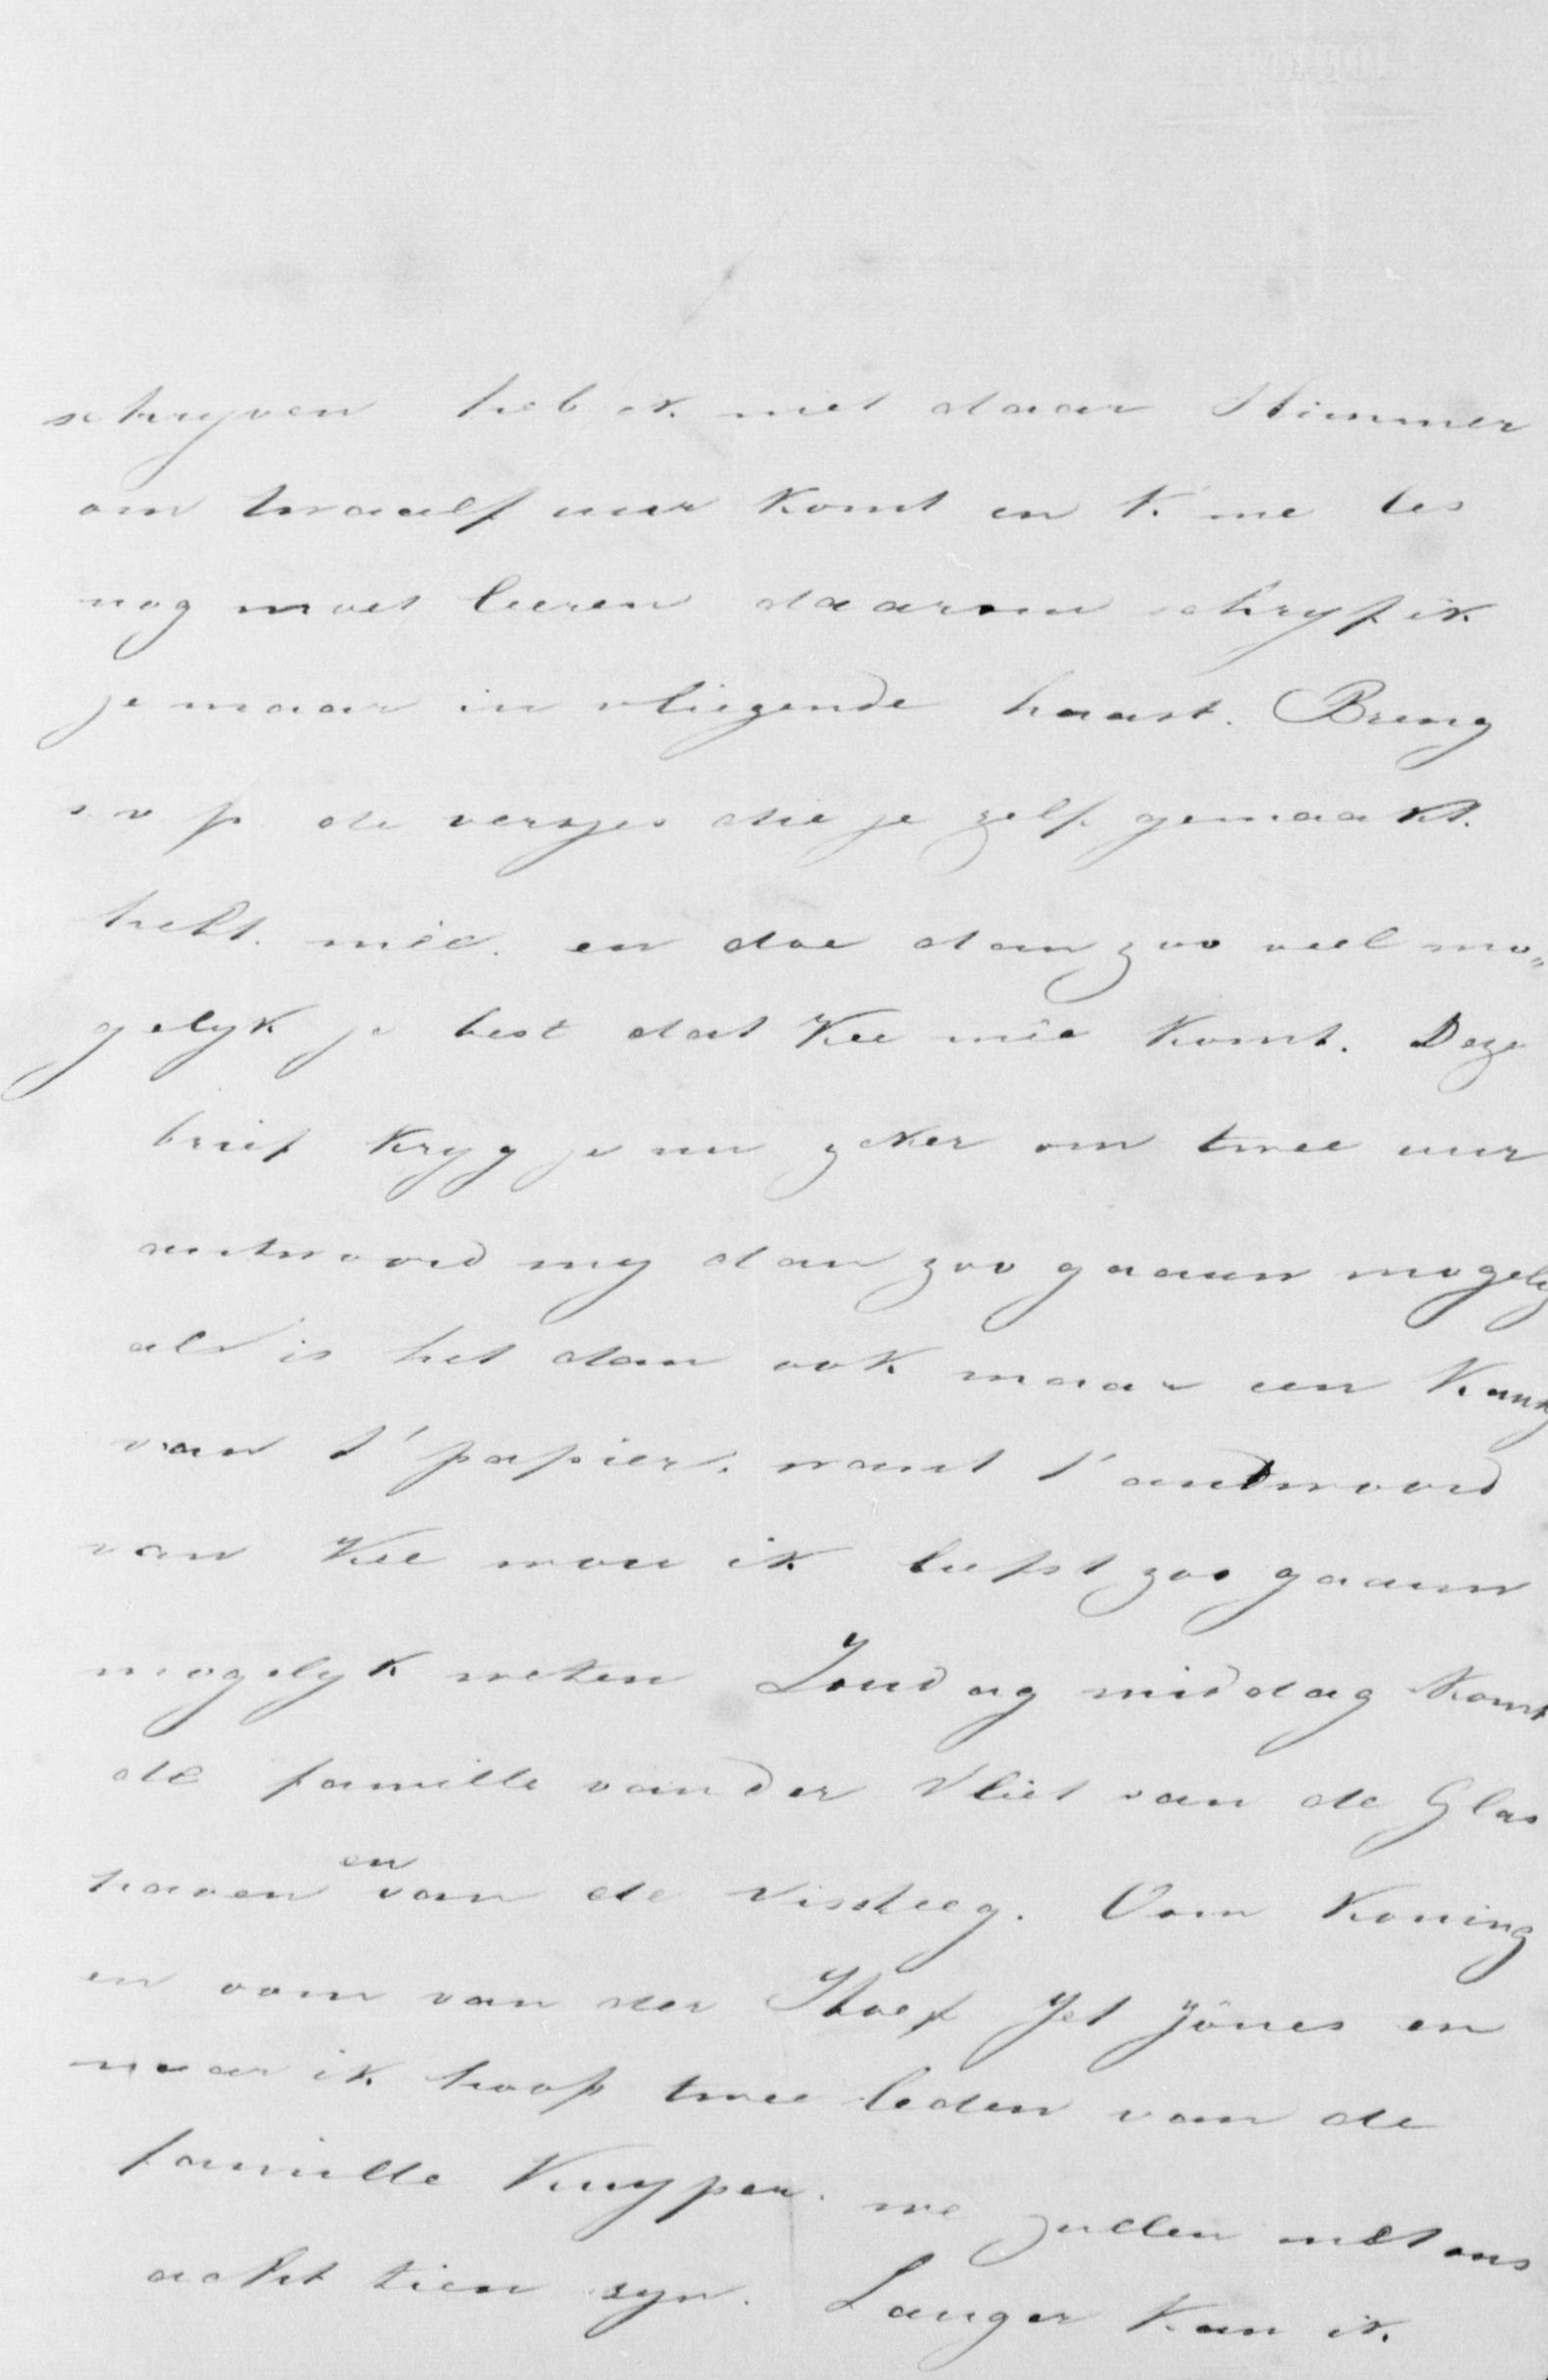 schryven heb ik niet daar Stimmer
om twaalf uur komt en k' me les
nog moet leeren daarom schryf ik
je maar in vliegende haast. Breng
s v p de versjes die je zelf gemaakt
hebt meê. en doe dan zoo veel mo„
gelyk je best dat Kee meê komt. Deze
brief kryg je nu zeker om twee uur
antwoord my dan zoo gaauw mogely
als is het dan ook maar een
van t' papier. want t' andwoord
van Kee wou ik liefst zoo gaauw
mogelyk weten Zondag middag komt
de familie van der Vliet van de Glas
haven en van de Vissteeg. Oom Koning
en oom van der Hoef Jet Jònes en
naar ik hoop twee leden van de
familie Kuyper. we zullen met ons
acht tien zyn. Langer kan ik